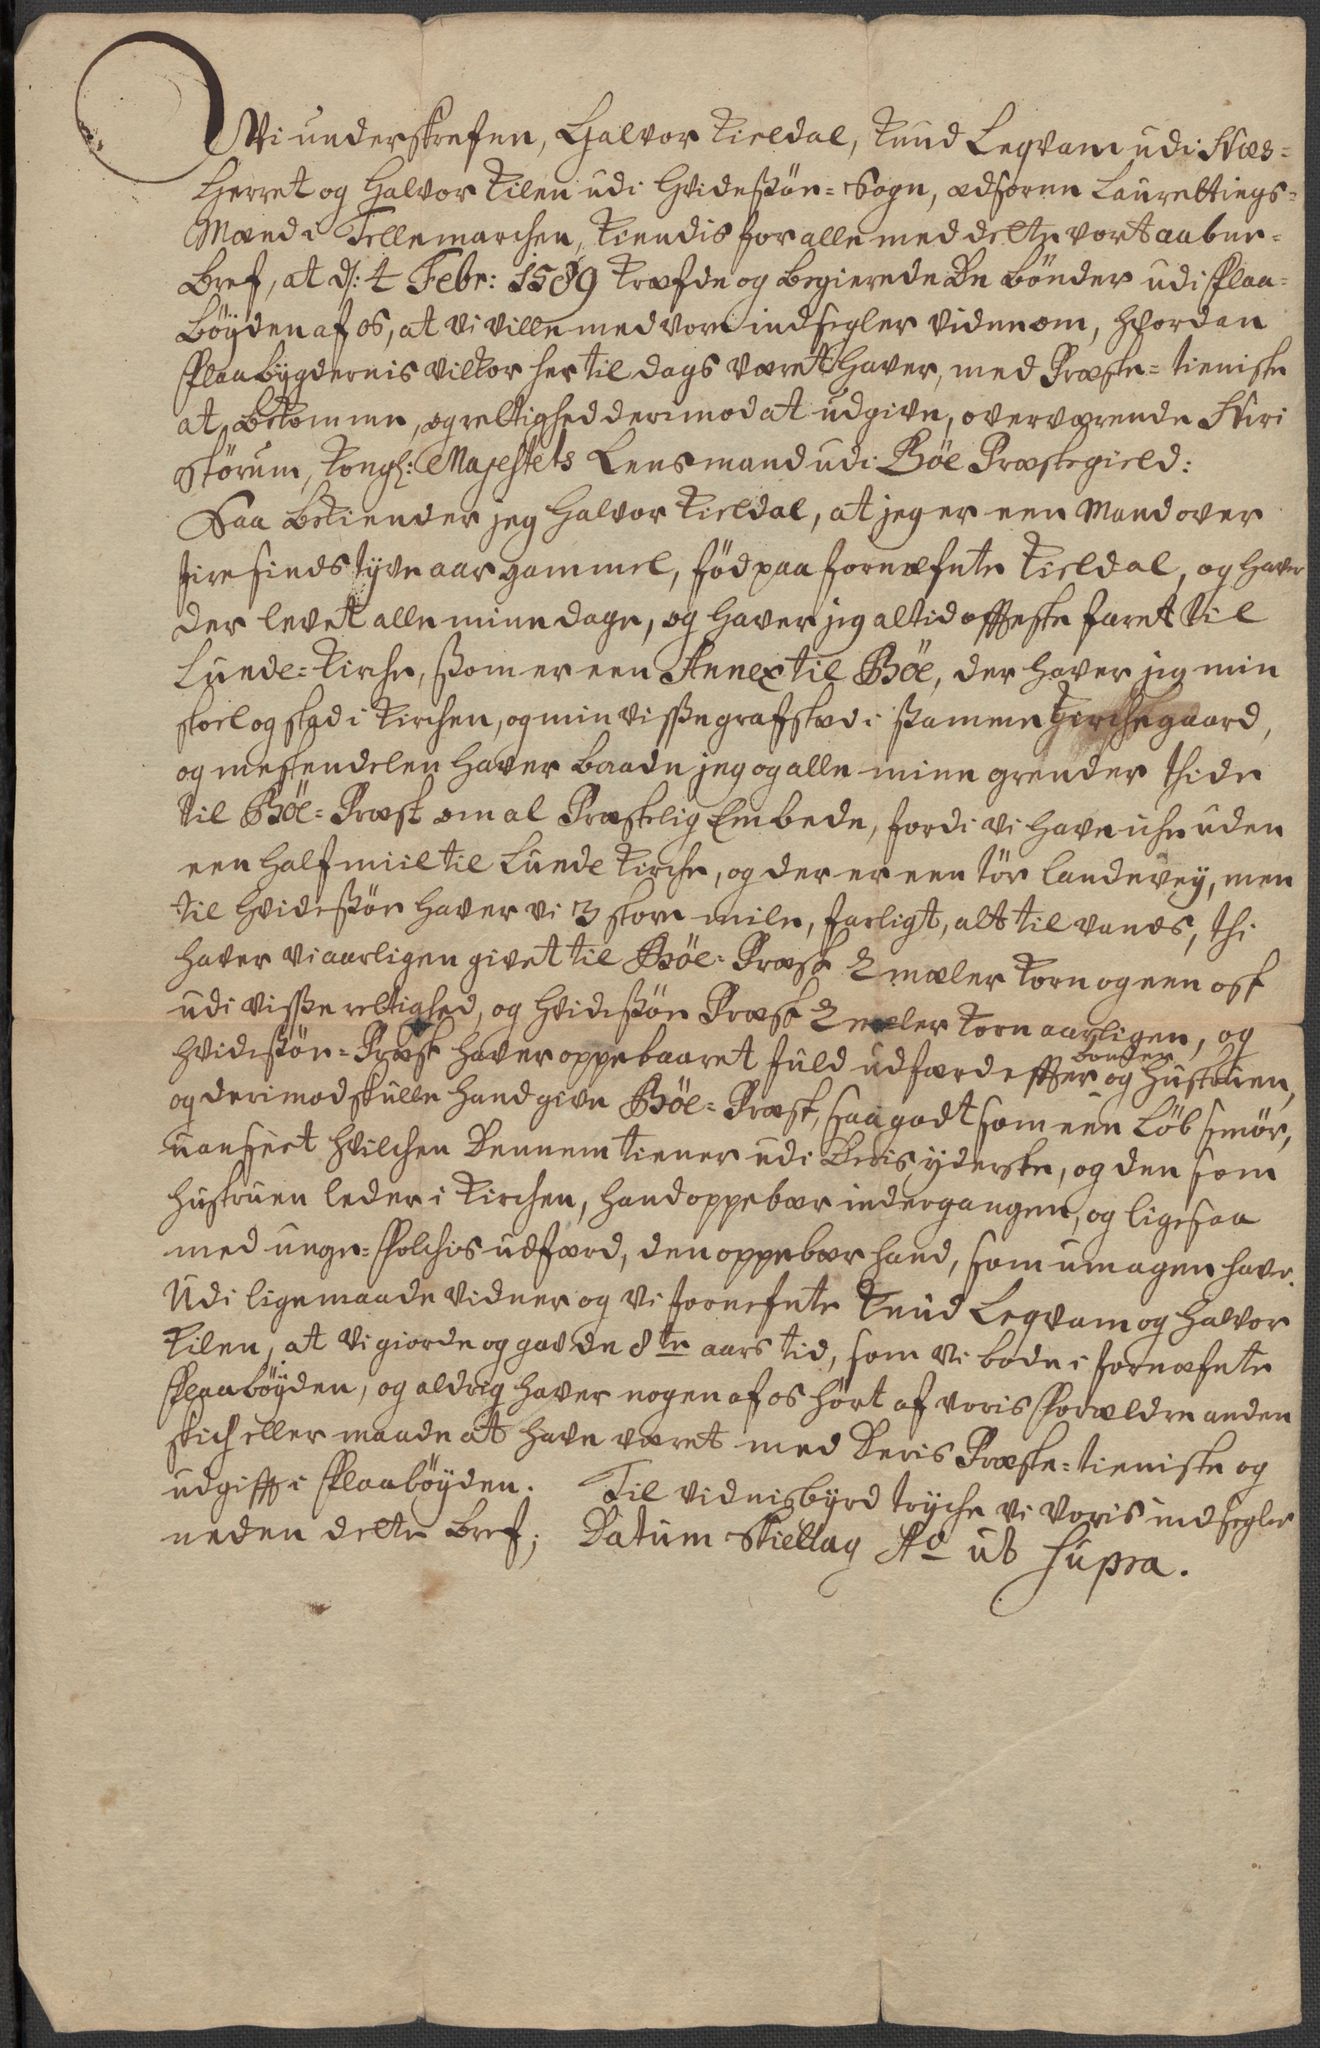 Vi underskrefne, Halvor Kieldal, Knud Leqvam udi Næs=
Herret og Halvor Kilen udi Hvidessöe= Sogn, edsorne Laurettings=
Mænd i Tellemarchen, Kiendis for alle med dette vort aabne=
bref, at d: 4 Febr: 1589 Krafde og begierede De bönder udi Flaa=
böyden af os, at vi ville med vore indsegler vidne om, hvordan
Flaabygdernis vilkor her til dags været haver, med Præste= tieniste
at bekomme, og rettighed derimod at udgive, overværende Siri
Störum, Kongl: Majestets Lensmand udi Böe Præstegield:
Saa bekiender jeg Halvor Kieldal, at jeg er een Mand over
fire sinds tyve aar gammel, föd paa fornæfnte Kieldal, og haver
der levet alle mine dage, og haver jeg altid offteste faret til
Lunde= Kirche, ssom er een Annex til Böe, der haver jeg min
stoel og sted i Kirchen, og min visse grafsted i ssamme Kirchegaard,
og mestendelen haver baade jeg og alle mine grender thidt
til Böe= Præst om al Præstelig Embede, fordi vi have iche uden
een half miil til Lunde Kirche, og der er een tör landevey, men
til Hvidessöe haver vi 3 store mile, farligt, alt til vands, thi
haver vi aarligen givet til Böe= Præst 2 mæler Korn og een ost
udi visse rettighed, og Hvidessöe Præst 2 mæler Korn aarligen, og
Hvidessöe= Præst haver oppebaaret fuld udfærd effter bonden og Hustruen,
og derimod skulle hand give Böe= Præst, saa godt som een Löb smör,
uanseet hvilchen Dennem tiener udi Deris yderste, og den som
hustruen leder i Kirchen, hand oppebær indergangen, og ligesaa
med unge= Folchis udfærd, den oppebær hand, som umagen haver.
Udi ligemaade vidner og vi fornefnte Knud Leqvam og Halvor
Kilen, at vi giorde og gav de 8te aars tid, som vi bode i fornæfnte
Flaaböyden, og aldrig haver nogen af os hört af voris Forældre anden
skich eller maade at have været med Deris Præste= tieniste og
udgifft i Flaaböyden. Til vidnisbyrd tryche vi voris indsegler
neden dette bref; Datum Skiellag Ao ut supra.